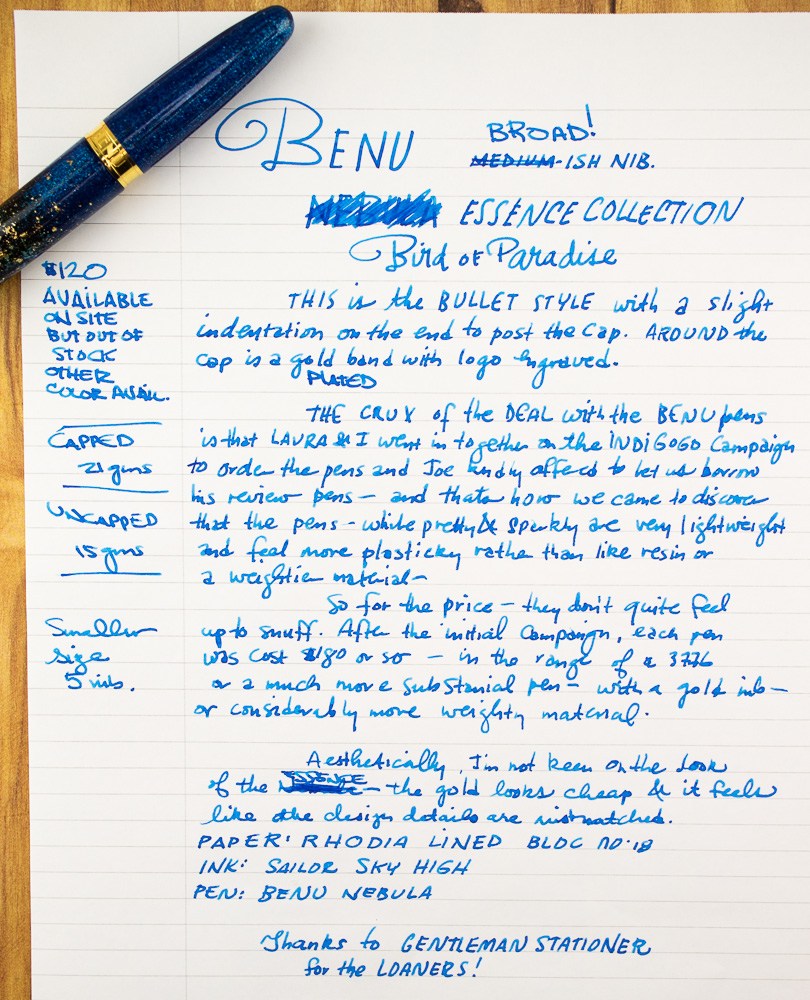 BENU
BROAD!
MEDIUM-ISH NIB.
ESSENCE COLLECTION
Bird of Paradise
$120
AVAILABLE
ON SITE
BUT OUT OF
STOCK
OTHER
COLOR AVAIL.
CAPPED
21 gms
UNCAPPED
15 gms
Smaller
size
5 nib.
THIS is the BULLET STYLE with a slight
indentation on the end to post the cap. AROUND the
cap is a gold band with logo engraved.
PLATED
THE CRUX of the DEAL with the BENU pens
is that LAURA & I went in together on the INDIGOGO Campaign
to order the pens and Joe kindly offered to let us borrow
his review pens — and thats how we came to discover
that the pens - while pretty & sparkly are very lightweight
and feel more plasticky rather than like resin or
a weightier material —
So for the price — they don't quite feel
up to snuff. After the initial Campaign, each pen
was cost $180 or so — in the range of a 3776
or a much more substanial pen — with a gold nib —
or considerably more weighty material.
Aesthetically, I'm not keen on the look
of the ESSENCE — the gold looks cheap & it feels
like the design details are mismatched.
PAPER: RHODIA LINED BLOC NO. 18
INK: SAILOR SKY HIGH
PEN: BENU NEBULA
Thanks to GENTLEMAN STATIONER
for the LOANERS!